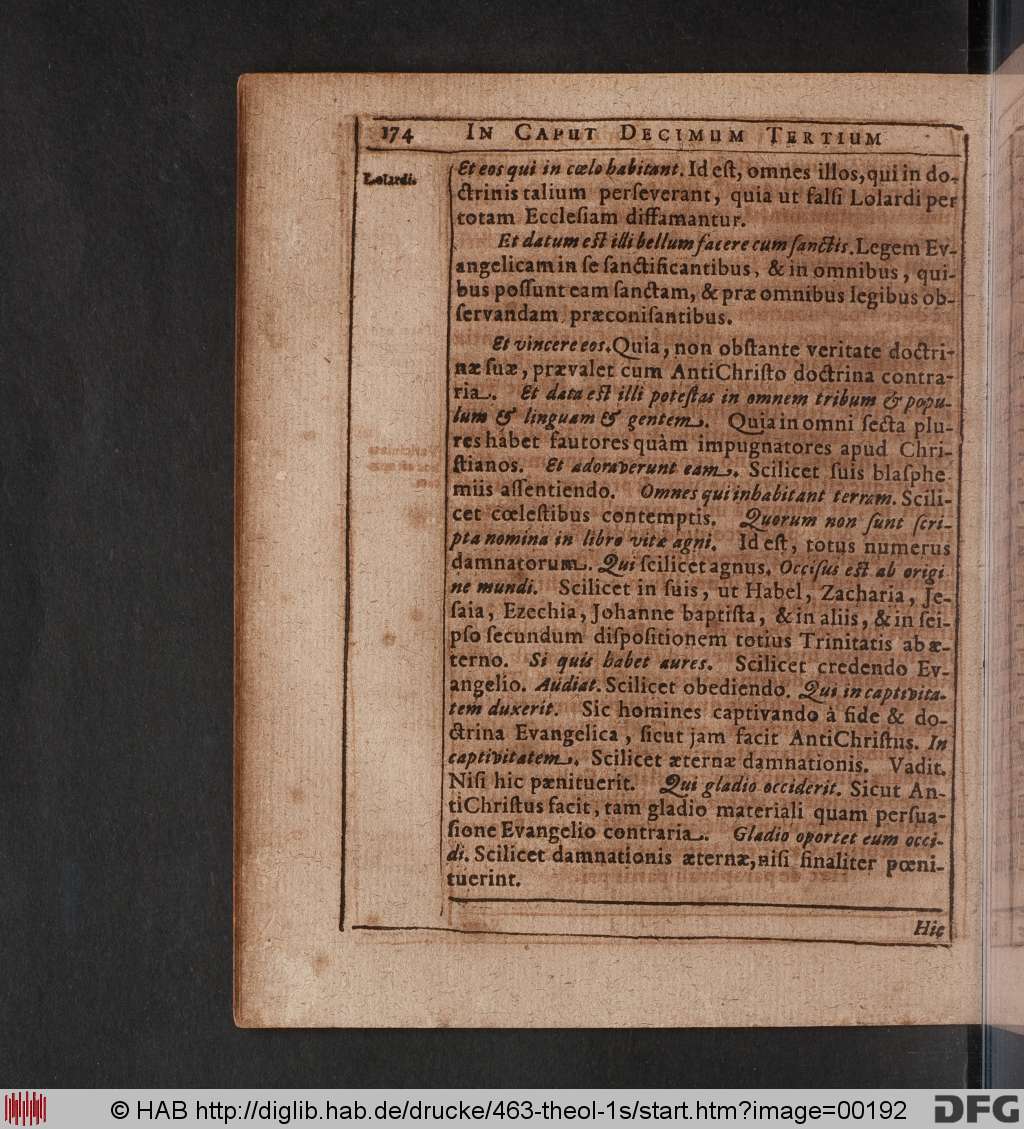 174 IN CAPUT DECIMUM TERTIUM
Lolardi.
Et eos qui in cœlo habitant. Id eſt, omnes illos, qui in do-
ctrinis talium perſeverant, quia ut falſi Lolardi per
totam Eccleſiam diffamantur.
Et datum eſt illi bellum facere cum ſanctis. Legem Ev-
angelicam in ſe ſanctificantibus, & in omnibus, qui-
bus poſſunt eam ſanctam, & præ omnibus legibus ob-
ſervandam præconiſantibus.
Et vincere eos. Quia, non obſtante veritate doctri-
næ ſuæ, prævalet cum AntiChriſto doctrina contra-
ria. Et data eſt illi poteſtas in omnem tribum & popu-
lum & linguam & gentem. Quia in omni ſecta plu-
res habet fautores quàm impugnatores apud Chri-
ſtianos. Et adoraverunt eam. Scilicet ſuis blaſphe
miis aſſentiendo. Omnes qui inhabitant terram. Scili-
cet cœleſtibus contemptis. Quorum non ſunt ſcri-
pta nomina in libro vitæ agni. Id eſt, totus numerus
damnatorum. Qui ſcilicet agnus. Occiſus eſt ab origi
ne mundi. Scilicet in ſuis, ut Habel, Zacharia, Je-
ſaia, Ezechia, Johanne baptiſta, & in aliis, & in ſei-
pſo ſecundum diſpoſitionem totius Trinitatis ab æ-
terno. Si quis habet aures. Scilicet credendo Ev-
angelio. Audiat. Scilicet obediendo. Qui in captivita-
tem duxerit. Sic homines captivando à fide & do-
ctrina Evangelica, ſicut jam facit AntiChriſtus. In
captivitatem. Scilicet æternæ damnationis. Vadit.
Niſi hic pænituerit. Qui gladio occiderit. Sicut An-
tiChriſtus facit, tam gladio materiali quam perſua-
ſione Evangelio contraria. Gladio oportet eum occi-
di. Scilicet damnationis æternæ, niſi finaliter pœni-
tuerint.
Hic
© HAB http://diglib.hab.de/drucke/463-theol-1s/start.htm?image=00192 DFG